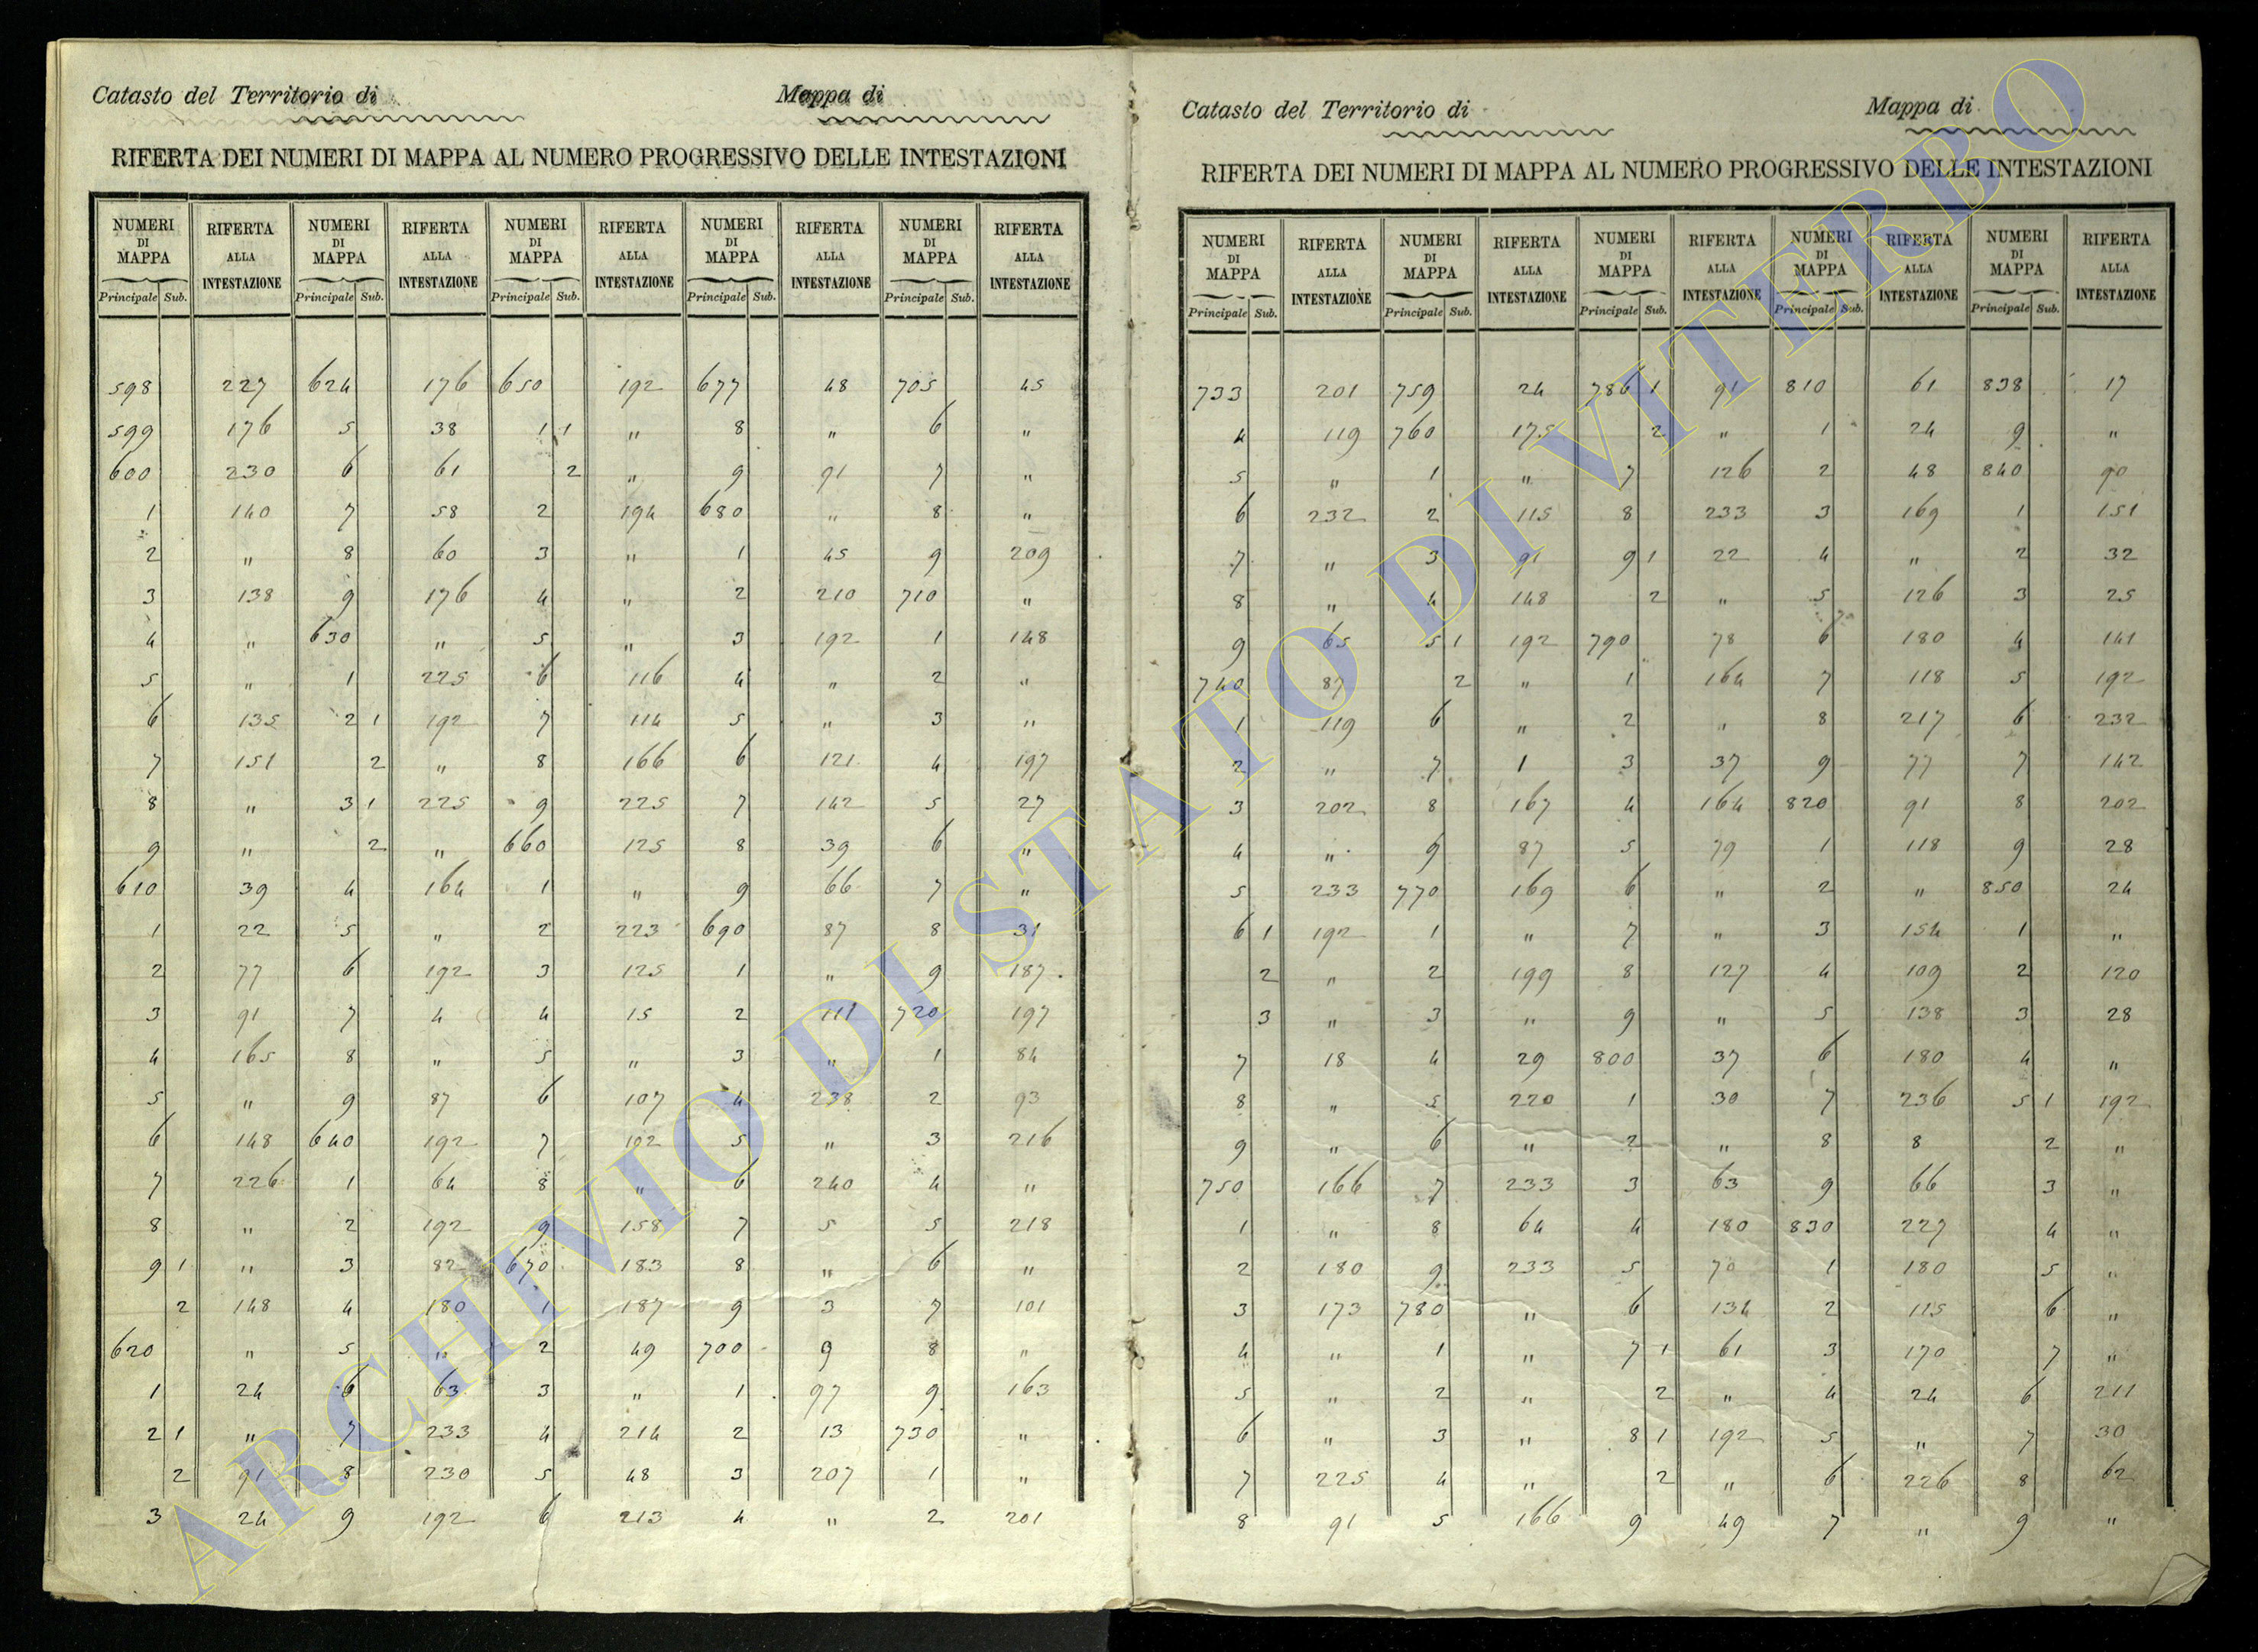 Catasto del Territorio di Mappa di
RIFERTA DEI NUMERI DI MAPPA AL NUMERO PROGRESSIVO DELLE INTESTAZIONI
NUMERI RIFERTA NUMERI RIFERTA NUMERI RIFERTA NUMERI RIFERTA NUMERI RIFERTA
DI ALLA DI ALLA DI ALLA DI ALLA DI ALLA
MAPPA INTESTAZIONE MAPPA INTESTAZIONE MAPPA INTESTAZIONE MAPPA INTESTAZIONE MAPPA INTESTAZIONE
Principale Sub. Principale Sub. Principale Sub. Principale Sub. Principale Sub.
598 227 624 176 650 192 677 48 705 45
599 176 5 38 1 1 " 8 " 6 "
600 230 6 61 2 " 9 91 7 "
1 140 7 58 2 194 680 " 8 "
2 " 8 60 3 " 1 45 9 209
3 138 9 176 4 " 2 210 710 "
4 " 630 " 5 " 3 192 1 148
5 " 1 225 6 116 4 " 2 "
6 135 2 1 192 7 114 5 " 3 "
7 151 2 " 8 166 6 121 4 197
8 " 3 1 225 9 225 7 142 5 27
9 " 2 " 660 125 8 39 6 "
610 39 4 164 1 " 9 66 7 "
1 22 5 " 2 223 690 87 8 31
2 77 6 192 3 125 1 " 9 187
3 91 7 4 4 15 2 111 720 197
4 165 8 " 5 " 3 " 1 84
5 " 9 87 6 107 4 238 2 93
6 148 640 192 7 102 5 " 3 216
7 226 1 64 8 " 6 240 4 "
8 " 2 192 9 158 7 5 5 218
9 1 " 3 82 670 183 8 " 6 "
2 148 4 180 1 187 9 3 7 101
620 " 5 " 2 49 700 9 8 "
1 24 6 63 3 " 1 97 9 163
2 1 " 7 233 4 214 2 13 730 "
2 91 8 230 5 48 3 207 1 "
3 24 9 192 6 213 4 " 2 201
Catasto del Territorio di Mappa di
RIFERTA DEI NUMERI DI MAPPA AL NUMERO PROGRESSIVO DELLE INTESTAZIONI
NUMERI RIFERTA NUMERI RIFERTA NUMERI RIFERTA NUMERI RIFERTA NUMERI RIFERTA
DI ALLA DI ALLA DI ALLA DI ALLA DI ALLA
MAPPA INTESTAZIONE MAPPA INTESTAZIONE MAPPA INTESTAZIONE MAPPA INTESTAZIONE MAPPA INTESTAZIONE
Principale Sub. Principale Sub. Principale Sub. Principale Sub. Principale Sub.
733 201 759 24 786 1 91 810 61 838 17
4 119 760 175 2 " 1 24 9 "
5 " 1 " 7 126 2 48 840 90
6 232 2 115 8 233 3 169 1 151
7 " 3 91 9 1 22 4 " 2 32
8 " 4 148 2 " 5 126 3 25
9 65 5 1 192 790 78 6 180 4 141
740 87 2 " 1 164 7 118 5 192
1 119 6 " 2 " 8 217 6 232
2 " 7 1 3 37 9 77 7 142
3 202 8 167 4 164 820 91 8 202
4 " 9 87 5 79 1 118 9 28
5 233 770 169 6 " 2 " 850 24
6 1 192 1 " 7 " 3 154 1 "
2 " 2 199 8 127 4 109 2 120
3 " 3 " 9 " 5 138 3 28
7 18 4 29 800 37 6 180 4 "
8 " 5 220 1 30 7 236 5 1 192
9 " 6 " 2 " 8 8 2 "
750 166 7 233 3 63 9 66 3 "
1 " 8 64 4 180 830 227 4 "
2 180 9 233 5 70 1 180 5 "
3 173 780 " 6 134 2 115 6 "
4 " 1 " 7 1 61 3 170 7 "
5 " 2 " 2 " 4 24 6 211
6 " 3 " 8 1 192 5 " 7 30
7 225 4 " 2 " 6 226 8 62
8 91 5 166 9 49 7 " 9 "
ARCHIVIO DI STATO DI VITERBO